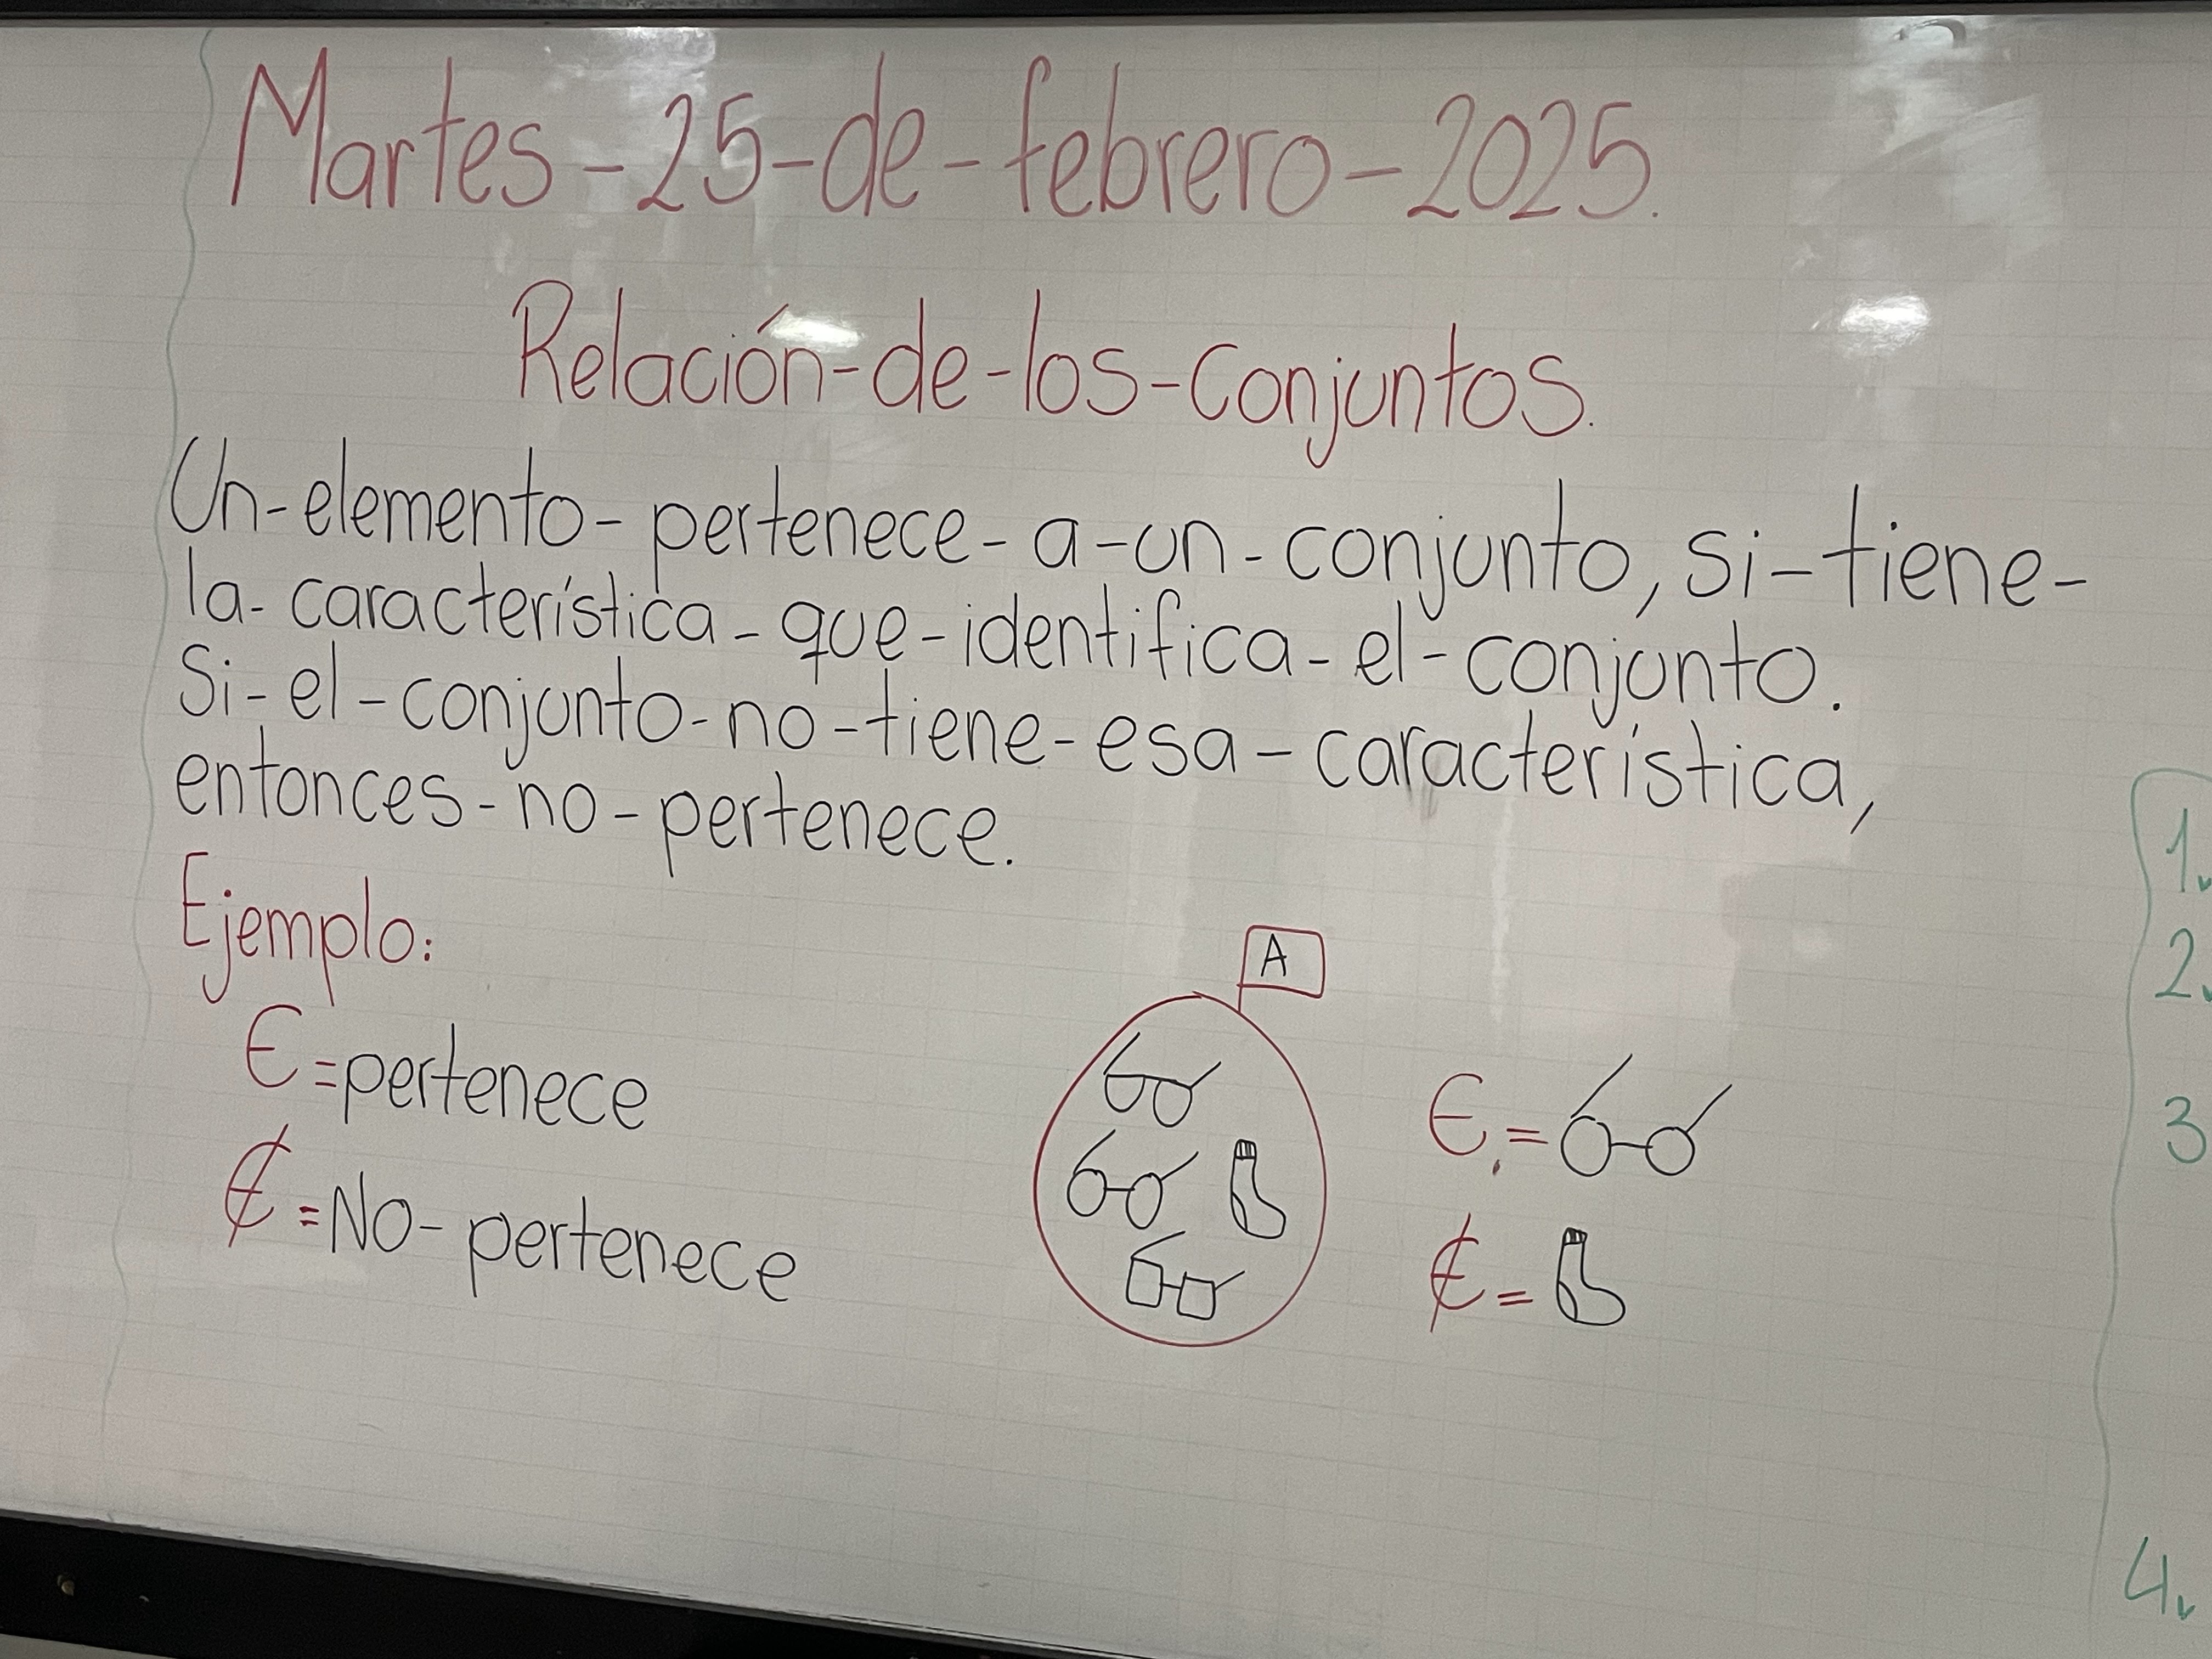 Martes-25-de-febrero-2025.
Relación-de-los-conjuntos.
Un-elemento-pertenece-a-un-conjunto, si-tiene-
la-característica-que-identifica-el-conjunto.
Si-el-conjunto-no-tiene-esa-característica,
entonces-no-pertenece.
Ejemplo:
A
∈=pertenece
∉=No-pertenece
∈=
∉=
1.
2.
3
4.